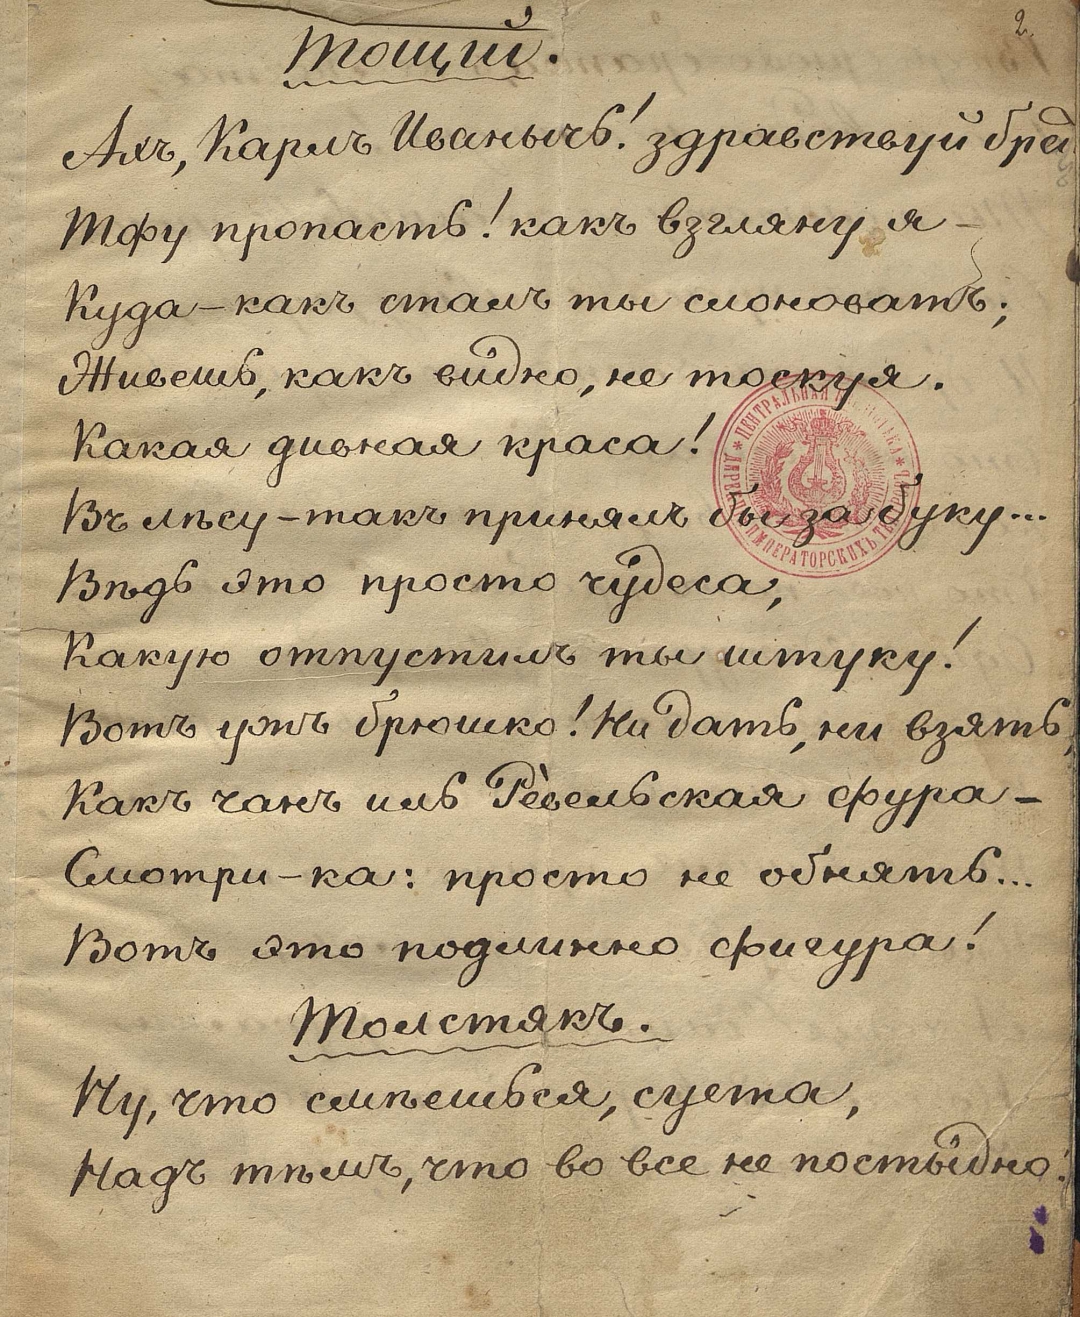 2.
Тощій.
Ахъ, Карлъ Иванычъ! здравствуй
Тфу пропасть! какъ взгляну я –
Куда – какъ сталъ ты слоноватъ;
Живешь, какъ видно, не тоскуя.
Какая дивная краса!
Въ лѣсу – такъ принялъ бы за буку...
Вѣдь это просто чудеса,
Какую отпустилъ ты штуку!
Вотъ ужъ брюшко! Ни дать, ни взять,
Какъ чанъ иль Ревельская фура –
Смотри-ка: просто не обнять...
Вотъ это подлинно фигура!
Толстякъ.
Ну, что смѣешься, суета,
Надъ тѣмъ, что во все не постыдно:
ЦЕНТРАЛЬНАЯ
ИМПЕРАТОРСКИХЪ